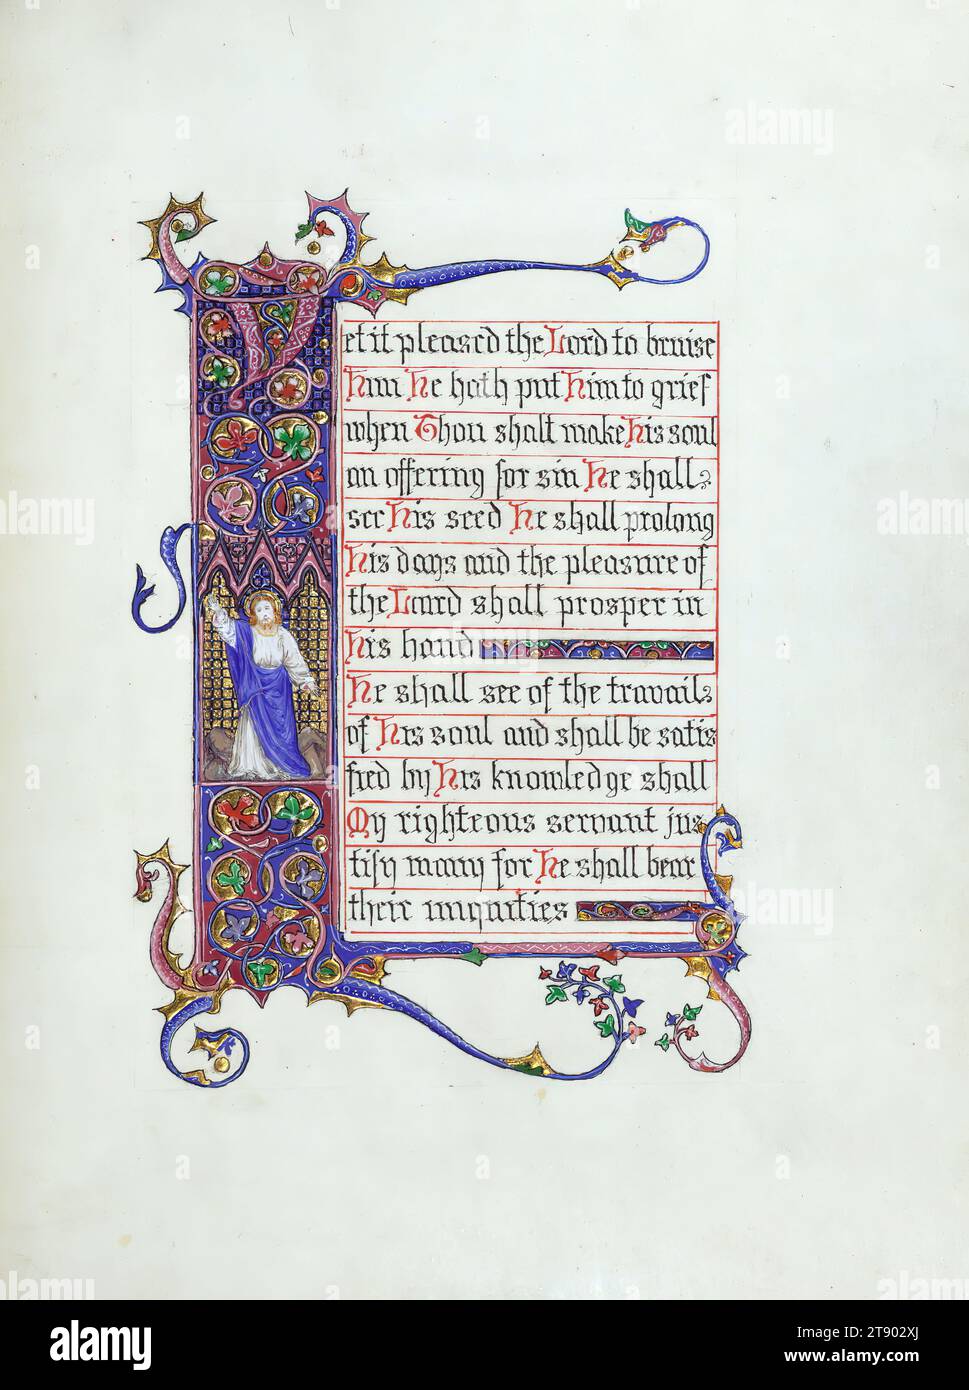 Yet it pleased the Lord to bruise
Him He hath put Him to grief
when Thou shalt make His soul
an offering for sin He shall
see His seed He shall prolong
His days and the pleasure of
the Lord shall prosper in
His hand
He shall see of the travail
of His soul and shall be satis
fied by His knowledge shall
My righteous servant jus
tify many for He shall bear
their iniquities
alamy
alamy
Image ID: 2T902XJ
www.alamy.com